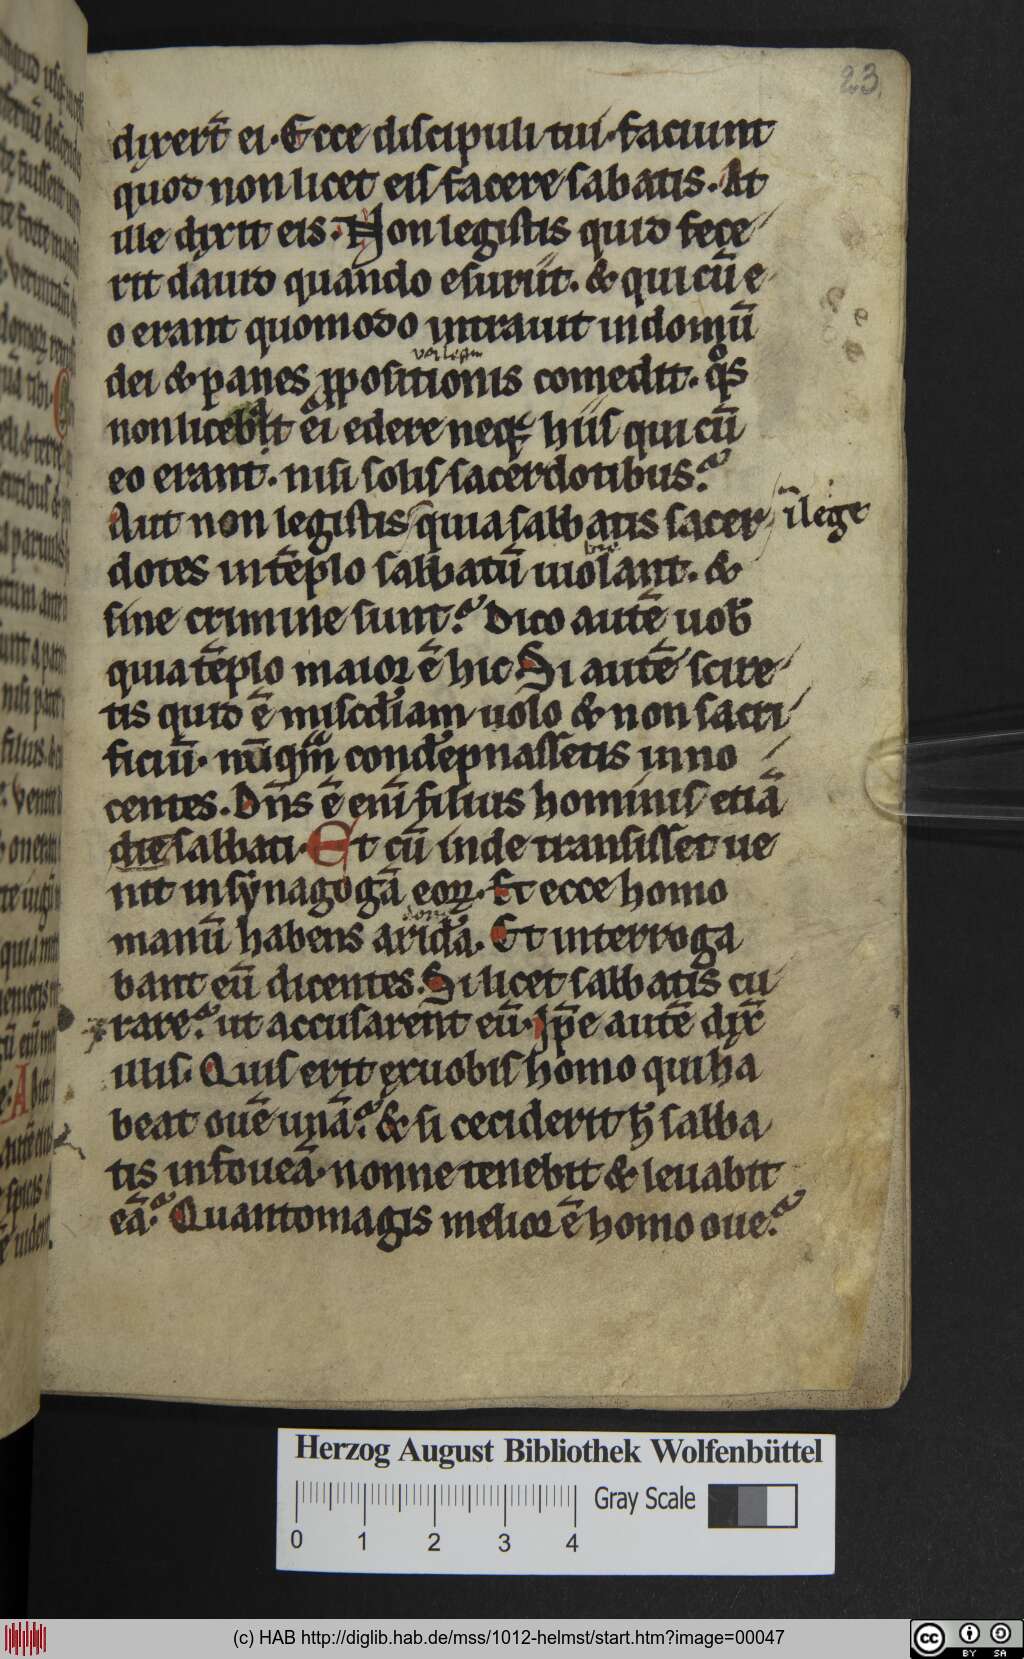 23.
dixert̄ ei· Ecce discipuli tui· faciunt
quod non licet eis facere sabatis. At
ille dixit eis· Non legistis quid fece
rit dauid quando esuriit. & qui cū e
o erant quomodo intrauit in domū
dei & panes ꝓpositionis comedit. qͦs
non licebat ei edere neqꝫ hiis qui cū
eo erant. nisi solis sacerdotibus?
Aut non legistis quia sabbatis sacer
in lege
dotes in tēplo sabbatū uiolant. &
sine crimine sunt? Dico autē uob̄
quia tēplo maior ē hic. Si autē scire
tis quid ē mis̄cdiam uolo & non sacri
ficiū· nūqᷓm condēpnassetis inno
centes. Dn̄s ē eni filius hominis etiā
die sabbati· Et cū inde transisset ue
nit in synagogā eoꝝ. Et ecce homo
manū habens aridā. Et interroga
bant eū dicentes. Si licet sabbatis cu
rare? ut accusarent eū· Ip̄e autē dix̄
illis. Quis erit ex uobis homo qui ha
beat ouē unā? & si ceciderit h̄ sabba
tis in foueā· nonne tenebit & leuabit
eā? Quanto magis melior ē homo oue?
Herzog August Bibliothek Wolfenbüttel
Gray Scale
0 1 2 3 4
(c) HAB http://diglib.hab.de/mss/1012-helmst/start.htm?image=00047
cc BY SA